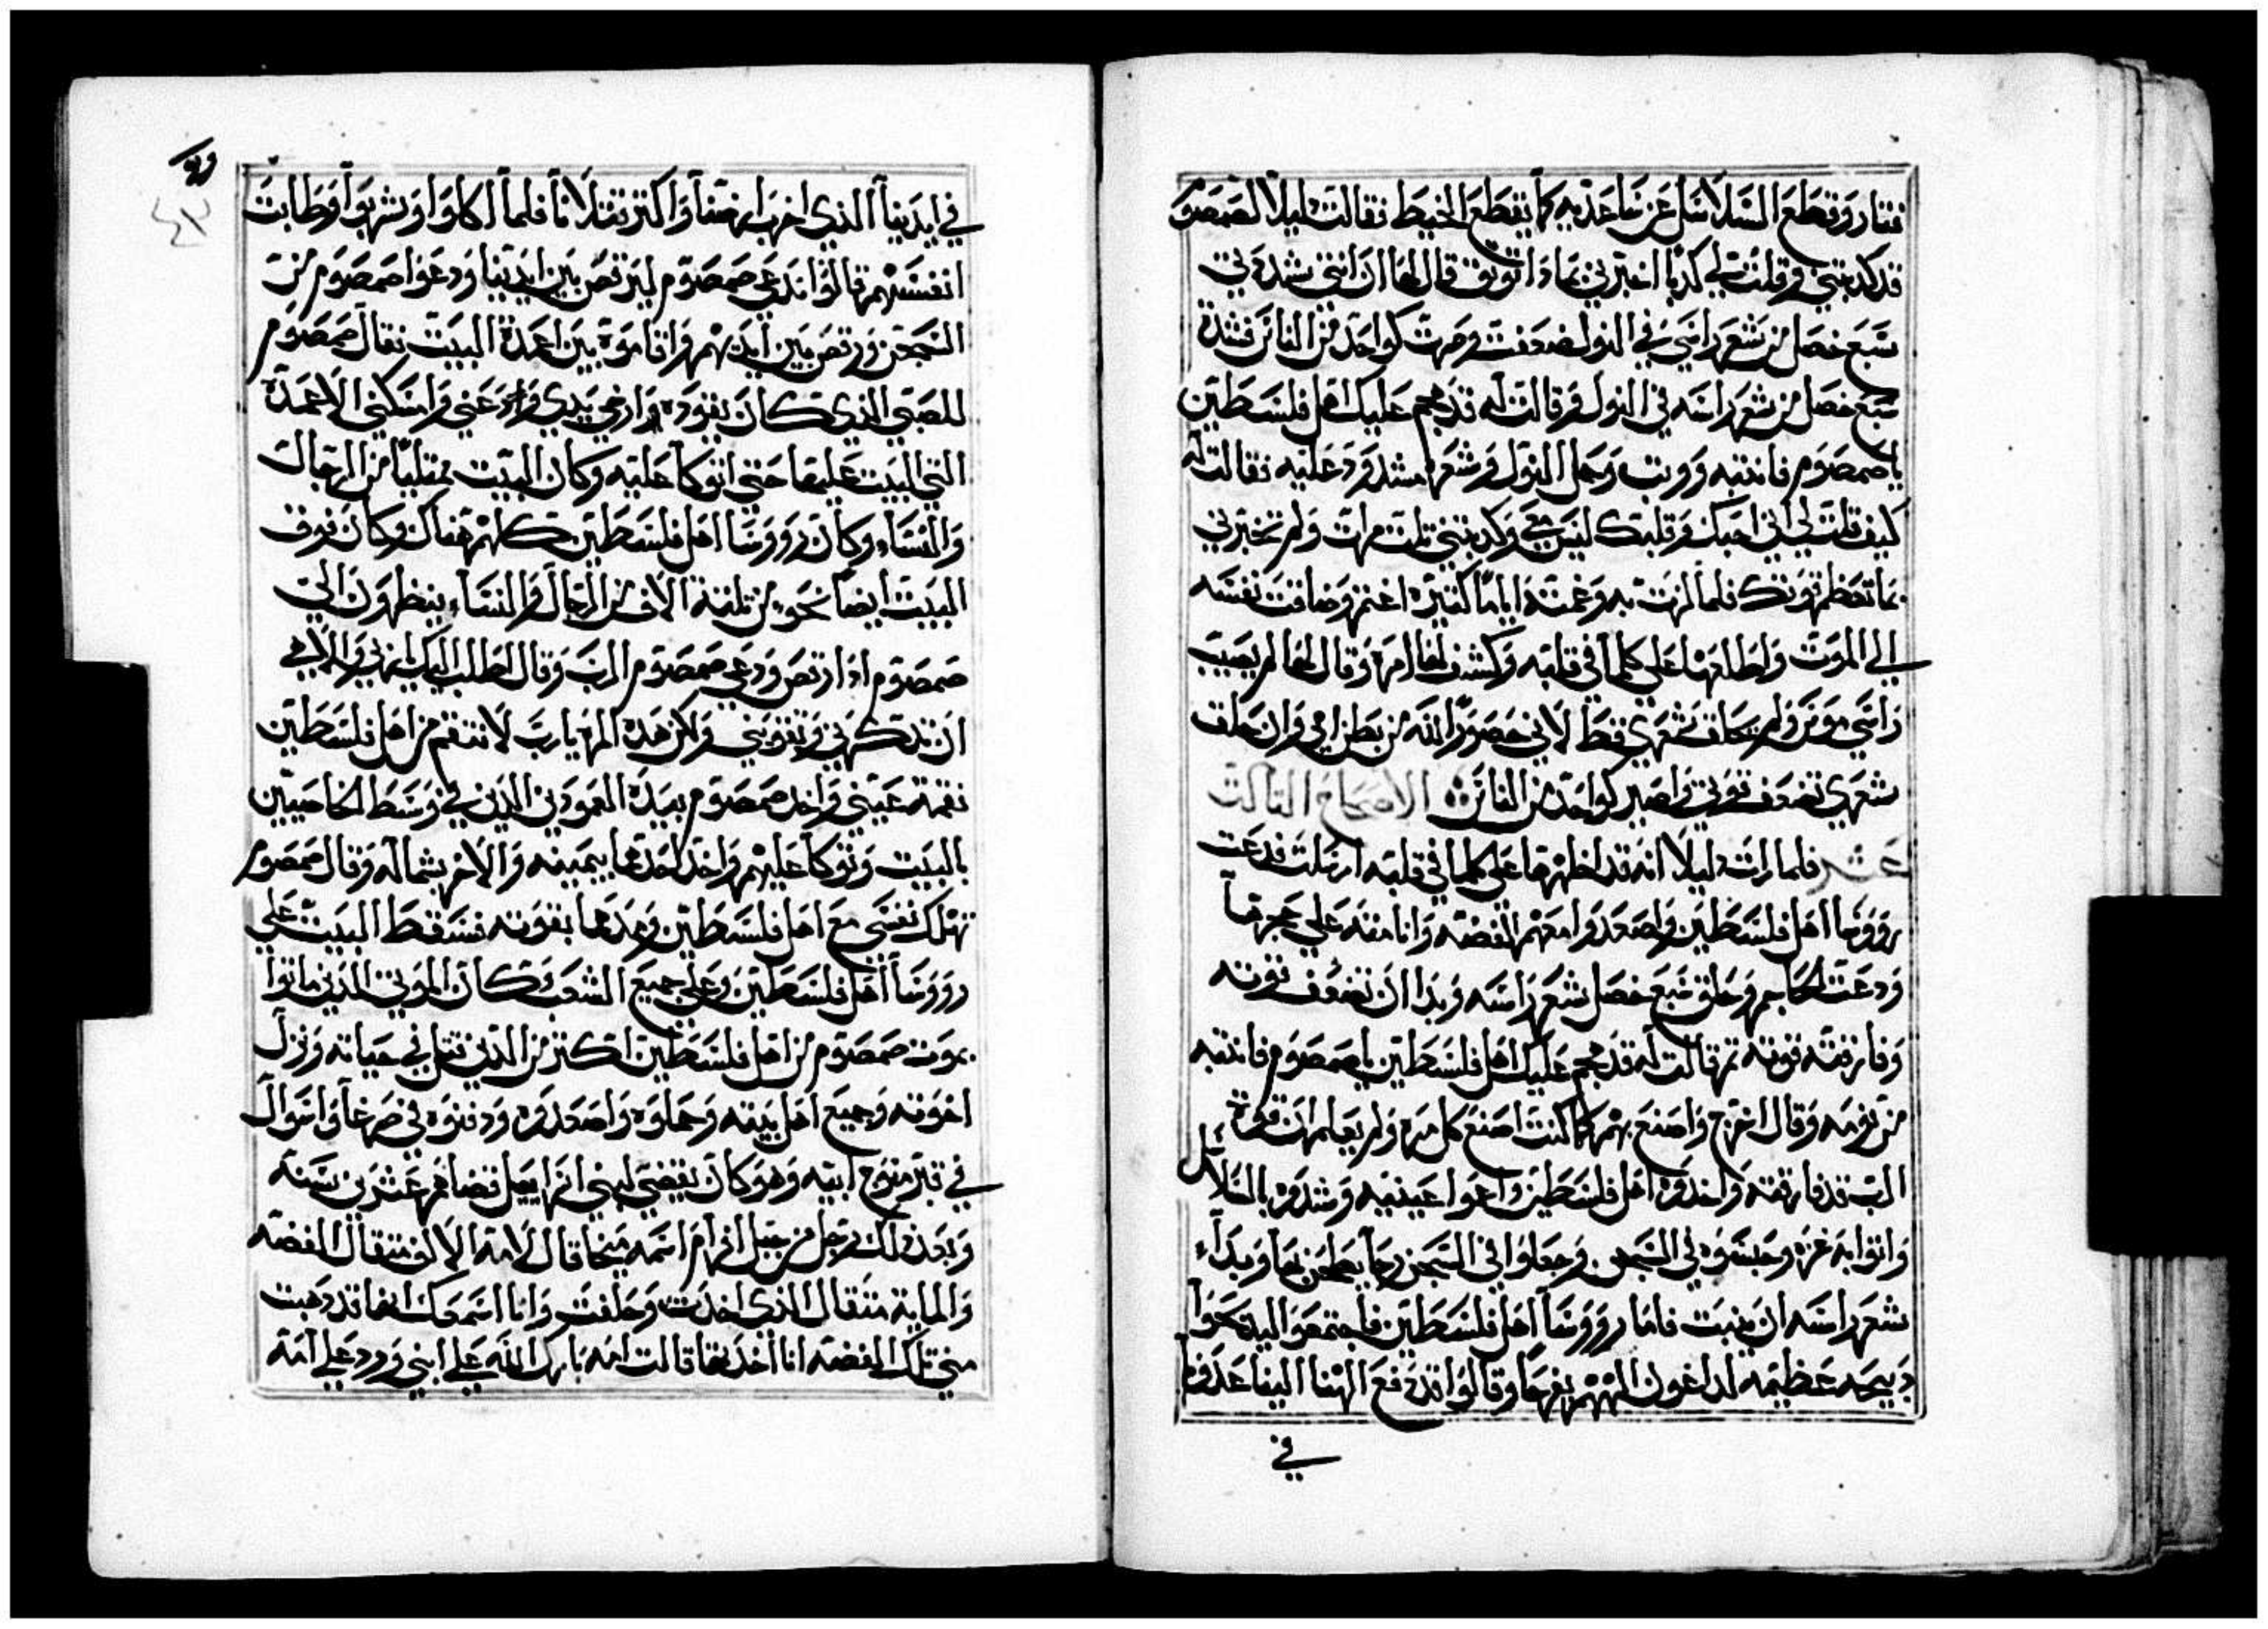 فثار وقطع السلاسل عن ساعديه كما يقطع الخيط فقالت ليلا لصمصوم
قد كدبتني وقلت لي كدبًا اخبرني بمادا توتق قال لها ان انتي شددتي
سبع خصل من شعر راسي في النول ضعفت وصرت كواحد من الناس فشدة
سبع خصل من شعر راسه في النول وقالت له قد هجم عليك اهل فلسطين
يا صمصوم فانتبه ووتب وحمل النول وشعره مشدود عليه فقالت له
كيف قلت لي اني احبك وقلبك ليس معي وكدبتني تلت مرات ولم تخبرني
بما تعظم قوتك فلما لزت به وغمته اياما كتيرة اغتم وضاقت نفسه
الي الموت واطلعها على كلما في قلبه وكشف لها امره وقال لها لم يصيب
راسي موس ولم يحلق شعري قط لاني حصور الله من بطن امي وان حلق
شعري تضعف قوتي واصير كواحد من الناس الاصحاح التالت
عشر فلما رات ليلا انه قد اظهرها على كلما في قلبه ارسلت فدعت
رووسا اهل فلسطين واصعدوا معهم الفضه وانامته على حجرها
ودعت الحاجم وحلق سبع خصل شعر راسه وبدا ان تضعف قوته
وفارقته قوته تم قالت له قد هجم عليك اهل فلسطين يا صمصوم فانتبه
من نومه وقال اخرج واصنع بهم كما كنت اصنع كل مره ولم يعلم ان قوة
الرب قد فارقته واخدوه اهل فلسطين واعموا عينيه وشدوه بالسلاسل
واتوا به غزه وحبسوه في السجن وجعلوا في السجن رحا يطحن بها وبداء
شعر راسه ان ينبت فاما رووسا اهل فلسطين فاجتمعوا ليدبحوا
دبيحه عظيمه لداغون الههم يفرحوا وقالوا قد دفع الهنا الينا عدونا
في
في ايدينا الذي اخرب ارضنا واكتر قتلانا فلما اكلوا وشربوا وطابت
انفسهم قالوا ندعي صمصوم ليرقص بين ايدينا ودعوا صمصوم من
السجن ورقص بين ايديهم واقاموه بين اعمدة البيت فقال صمصوم
للصبي الذي كان يقوده ارخي يدي ودعني وامسكني الاعمدة
التي البيت عليها حتي اتوكا عليه وكان البيت ممتليًا من الرجال
والنساء وكان رووسا اهل فلسطين كلهم هناك وكان فوق
البيت ايضا نحو من تلتة الاف من الرجال والنساء ينظرون الي
صمصوم ادا رقص ودعي صمصوم الرب وقال اطلب اليك يا ربي والاهي
ان تدكرني وتقويني ولكن هده المره يارب لانتقم من اهل فلسطين
نقمة عيني واخد صمصوم بيده العمودين الدين في وسط الخاصيين
بالبيت وتوكا عليهم واخد احدها بيمينه والاخر بشماله وقال صمصوم
تهلك نفسي مع اهل فلسطين وهدها بقوته فسقط البيت علي
رووسا اهل فلسطين وعلي جميع الشعب وكان الموتي الدين ماتوا
بموت صمصوم من اهل فلسطين اكتر من الدين قتل في حياته ونزل
اخوته وجميع اهل بيته وحملوه واصعدوه ودفنوه في صرعا واسوال
في قبر منوح ابيه وهو كان يقضي لبني اسراييل قضاهم عشرين سنة
وبعد دلك رجل من جبل افرام اسمه ميخا قال لامه الالف متقال الفضه
والماية متقال الذي اخدت وحلفت وانا اسمعك انها قد دهبت
مني تلك الفضه انا اخدتها قالت امه بارك الله علي ابني ورد علي امه